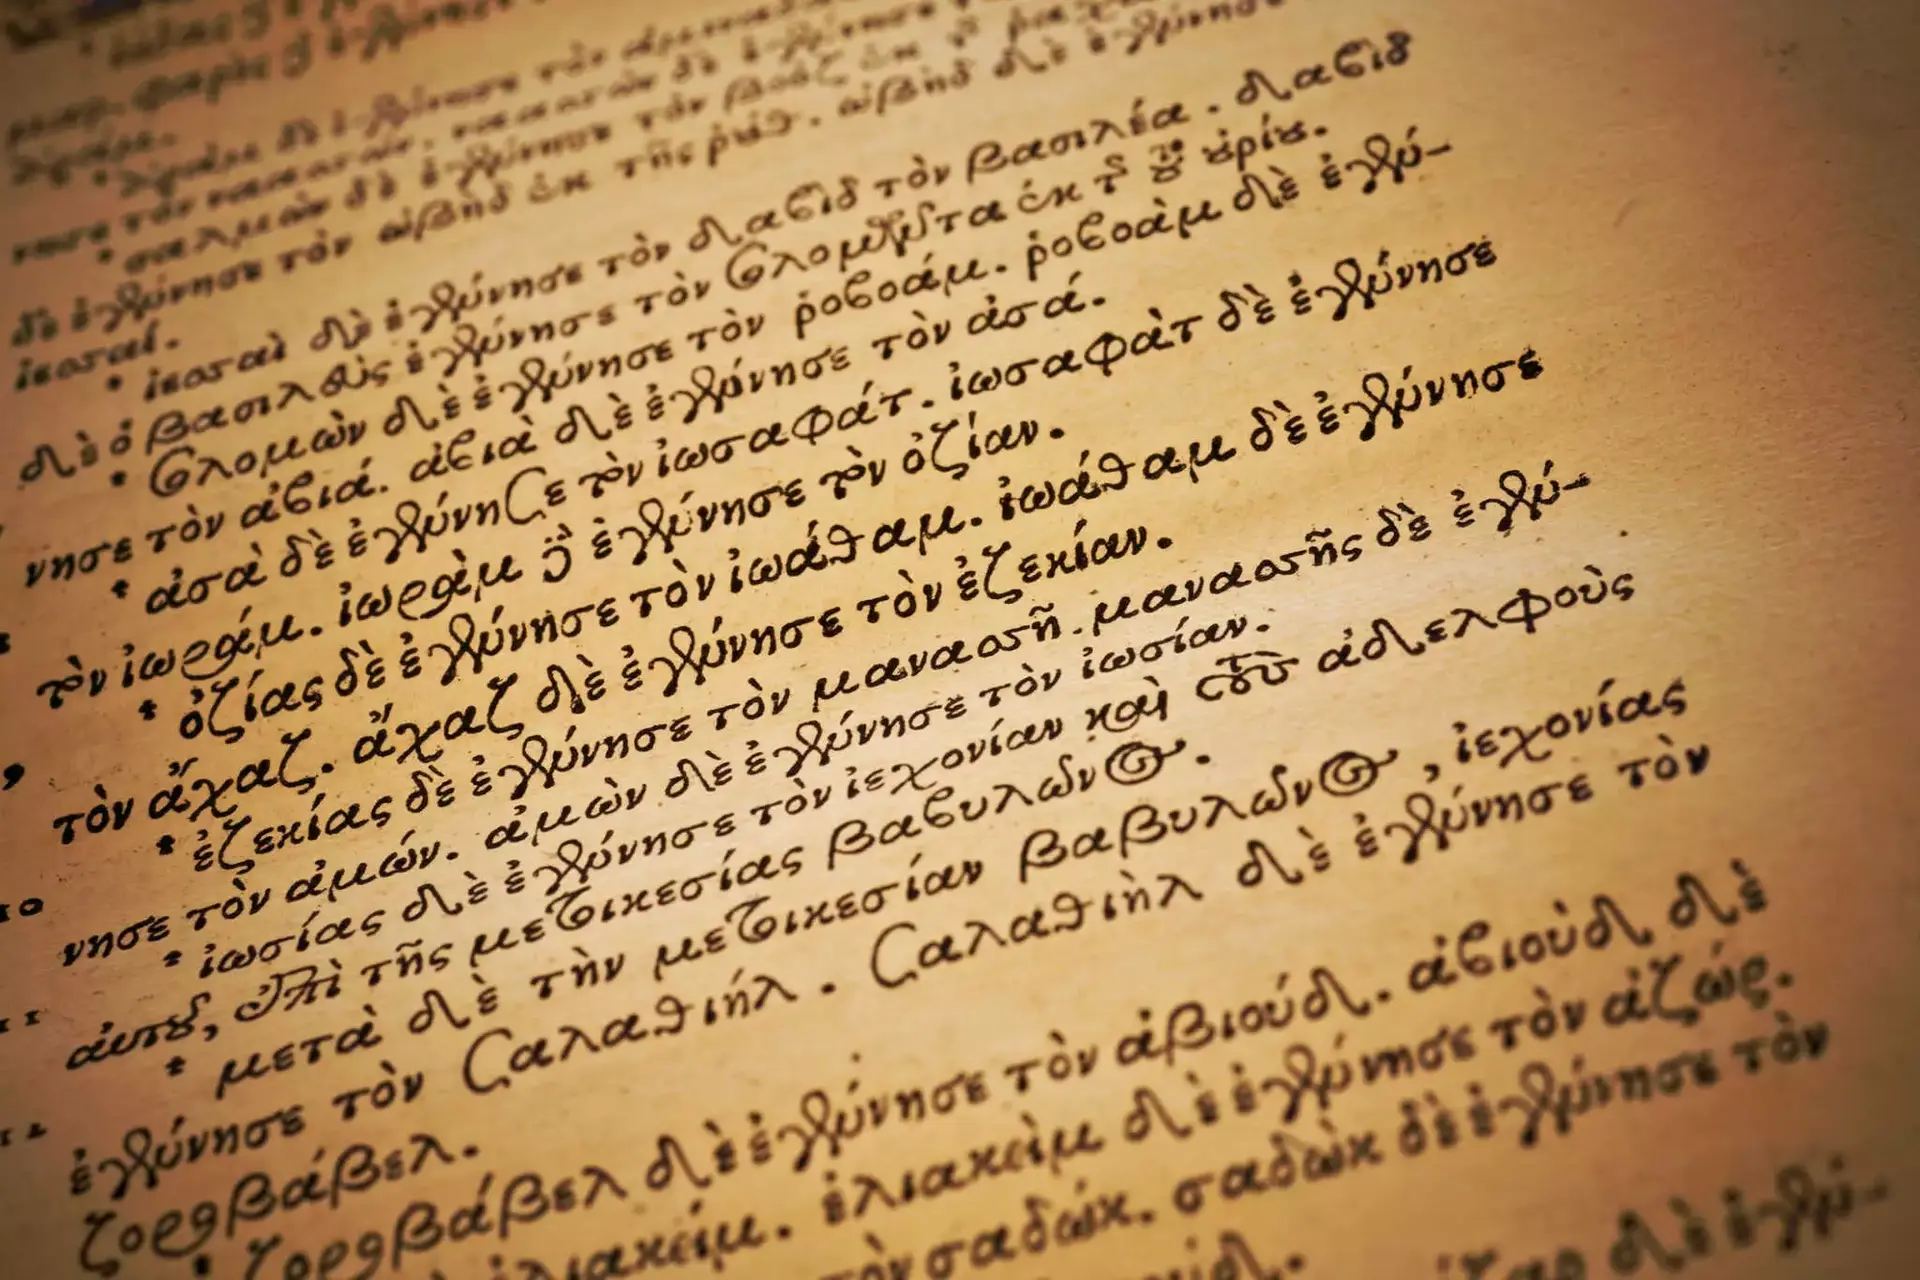 σαλμὼν δὲ ἐγέννησε τὸν βοὸζ ἐκ
δὲ ἐγέννησε τὸν ὠβὴδ ἐκ τῆς ῥούθ. ὠβὴδ δὲ ἐγέννησε
ἰεσσαί.
ἰεσσαὶ δὲ ἐγέννησε τὸν δαβὶδ τὸν βασιλέα. δαβὶδ
δὲ ὁ βασιλεὺς ἐγέννησε τὸν σολομῶντα ἐκ τῆς τοῦ οὐρίου.
σολομὼν δὲ ἐγέννησε τὸν ῥοβοάμ. ῥοβοὰμ δὲ ἐγέν-
νησε τὸν ἀβιά. ἀβιὰ δὲ ἐγέννησε τὸν ἀσά.
ἀσὰ δὲ ἐγέννησε τὸν ἰωσαφάτ. ἰωσαφὰτ δὲ ἐγέννησε
τὸν ἰωράμ. ἰωρὰμ δὲ ἐγέννησε τὸν ὀζίαν.
ὀζίας δὲ ἐγέννησε τὸν ἰωάθαμ. ἰωάθαμ δὲ ἐγέννησε
τὸν ἄχαζ. ἄχαζ δὲ ἐγέννησε τὸν ἐζεκίαν.
10 ἐζεκίας δὲ ἐγέννησε τὸν μανασσῆ. μανασσῆς δὲ ἐγέν-
νησε τὸν ἀμών. ἀμὼν δὲ ἐγέννησε τὸν ἰωσίαν.
11 ἰωσίας δὲ ἐγέννησε τὸν ἰεχονίαν καὶ τοὺς ἀδελφοὺς
αὐτοῦ, ἐπὶ τῆς μετοικεσίας βαβυλῶνος.
12 μετὰ δὲ τὴν μετοικεσίαν βαβυλῶνος, ἰεχονίας
ἐγέννησε τὸν σαλαθιήλ. σαλαθιὴλ δὲ ἐγέννησε τὸν
ζοροβάβελ.
ζοροβάβελ δὲ ἐγέννησε τὸν ἀβιούδ. ἀβιοὺδ δὲ
ἐλιακείμ. ἐλιακεὶμ δὲ ἐγέννησε τὸν ἀζώρ.
τὸν σαδώκ. σαδὼκ δὲ ἐγέννησε τὸν